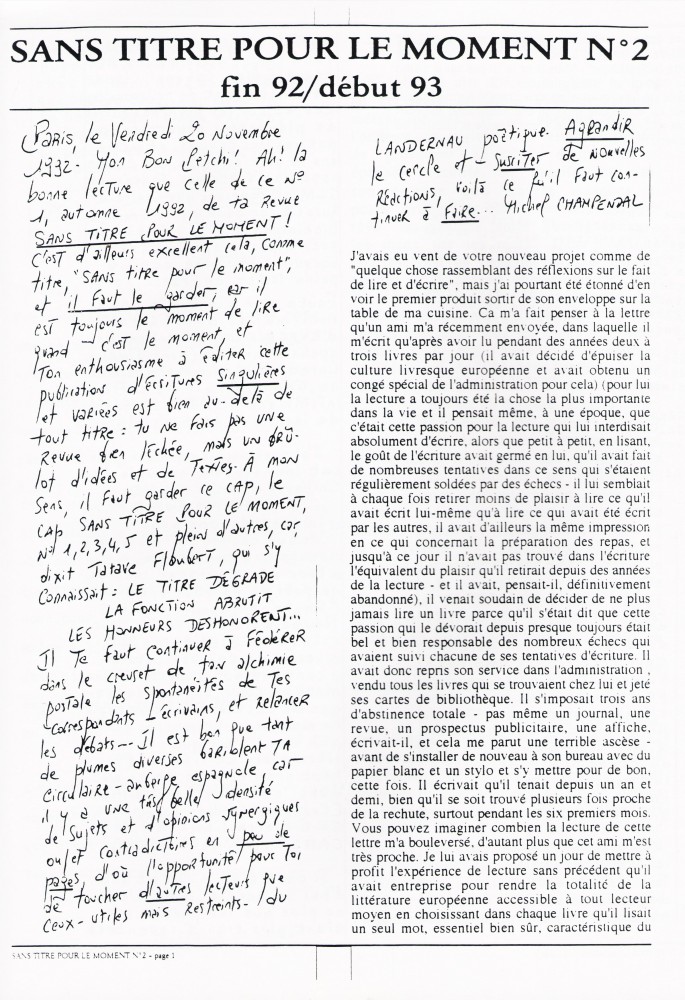 SANS TITRE POUR LE MOMENT N°2
fin 92/début 93
Paris, le Vendredi 20 Novembre
1992. Mon Bon Petchi! Ah! la
bonne lecture que celle de ce N°
1, automne 1992, de ta Revue
SANS TITRE POUR LE MOMENT!
C'est d'ailleurs excellent cela, comme
titre, "SANS titre pour le moment",
et il faut le garder, car il
est toujours le moment de lire
quand c'est le moment, et
Ton enthousiasme à éditer cette
publication d'Écritures Singulières
et variées est bien au-delà de
tout titre : tu ne fais pas une
Revue bien léchée, mais un brû-
lot d'idées et de Textes. À mon
Sens, il faut garder ce CAP, le
CAP SANS TITRE POUR LE MOMENT,
N° 1,2,3,4,5 et pleins d'autres, car,
dixit Tatave Flaubert, qui s'y
Connaissait : LE TITRE DÉGRADE
LA FONCTION ABRUTIT
LES HONNEURS DESHONORENT...
Il Te faut continuer à Fédérer
dans le creuset de ton alchimie
postale les spontanéités de Tes
Correspondants - écrivains, et relancer
les débats -- Il est bon que tant
de plumes diverses bariolent TA
Circulaire - auberge espagnole, car
il y a une très belle densité
de sujets et d'opinions synergiques
ou/et contradictoires en peu de
pages, d'où l'opportunité pour Toi
de toucher d'autres lecteurs que
Ceux - utiles mais Restreints - du
LANDERNAU poétique. Agrandir
le cercle et - Susciter de Nouvelles
Réactions, voilà ce qu'il faut con-
tinuer à Faire... Michel CHAMPENDAL
J'avais eu vent de votre nouveau projet comme de
"quelque chose rassemblant des réflexions sur le fait
de lire et d'écrire", mais j'ai pourtant été étonné d'en
voir le premier produit sortir de son enveloppe sur la
table de ma cuisine. Ca m'a fait penser à la lettre
qu'un ami m'a récemment envoyée, dans laquelle il
m'écrit qu'après avoir lu pendant des années deux à
trois livres par jour (il avait décidé d'épuiser la
culture livresque européenne et avait obtenu un
congé spécial de l'administration pour cela) (pour lui
la lecture a toujours été la chose la plus importante
dans la vie et il pensait même, à une époque, que
c'était cette passion pour la lecture qui lui interdisait
absolument d'écrire, alors que petit à petit, en lisant,
le goût de l'écriture avait germé en lui, qu'il avait fait
de nombreuses tentatives dans ce sens qui s'étaient
régulièrement soldées par des échecs - il lui semblait
à chaque fois retirer moins de plaisir à lire ce qu'il
avait écrit lui-même qu'à lire ce qui avait été écrit
par les autres, il avait d'ailleurs la même impression
en ce qui concernait la préparation des repas, et
jusqu'à ce jour il n'avait pas trouvé dans l'écriture
l'équivalent du plaisir qu'il retirait depuis des années
de la lecture - et il avait, pensait-il, définitivement
abandonné), il venait soudain de décider de ne plus
jamais lire un livre parce qu'il s'était dit que cette
passion qui le dévorait depuis presque toujours était
bel et bien responsable des nombreux échecs qui
avaient suivi chacune de ses tentatives d'écriture. Il
avait donc repris son service dans l'administration ,
vendu tous les livres qui se trouvaient chez lui et jeté
ses cartes de bibliothèque. Il s'imposait trois ans
d'abstinence totale - pas même un journal, une
revue, un prospectus publicitaire, une affiche,
écrivait-il, et cela me parut une terrible ascèse -
avant de s'installer de nouveau à son bureau avec du
papier blanc et un stylo et s'y mettre pour de bon,
cette fois. Il écrivait qu'il tenait depuis un an et
demi, bien qu'il se soit trouvé plusieurs fois proche
de la rechute, surtout pendant les six premiers mois.
Vous pouvez imaginer combien la lecture de cette
lettre m'a bouleversé, d'autant plus que cet ami m'est
très proche. Je lui avais proposé un jour de mettre à
profit l'expérience de lecture sans précédent qu'il
avait entreprise pour rendre la totalité de la
littérature européenne accessible à tout lecteur
moyen en choisissant dans chaque livre qu'il lisait
un seul mot, essentiel bien sûr, caractéristique du
SANS TITRE POUR LE MOMENT N°2 - page 1